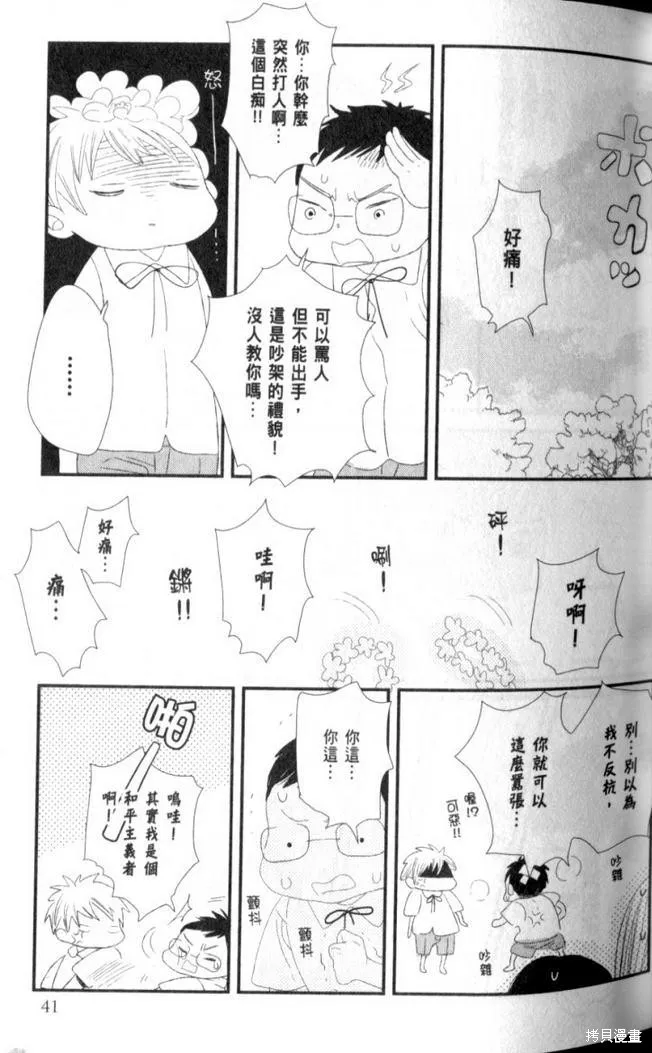 ポカッ
好痛！
你…你幹麼
突然打人啊…
這個白痴!!
可以罵人
但不能出手，
這是吵架的禮貌！
沒人教你嗎…
怒…
……
呀啊！
砰！
唰！
哇啊！
鏘!!
好痛…
痛…
別…別以為
我不反抗，
你就可以
這麼囂張…
喔!?
可惡!!
吵雜
吵雜
你這…
你這…
顫抖
顫抖
啪
嗚哇！
其實我是個
和平主義者
啊！
41
拷貝漫畫